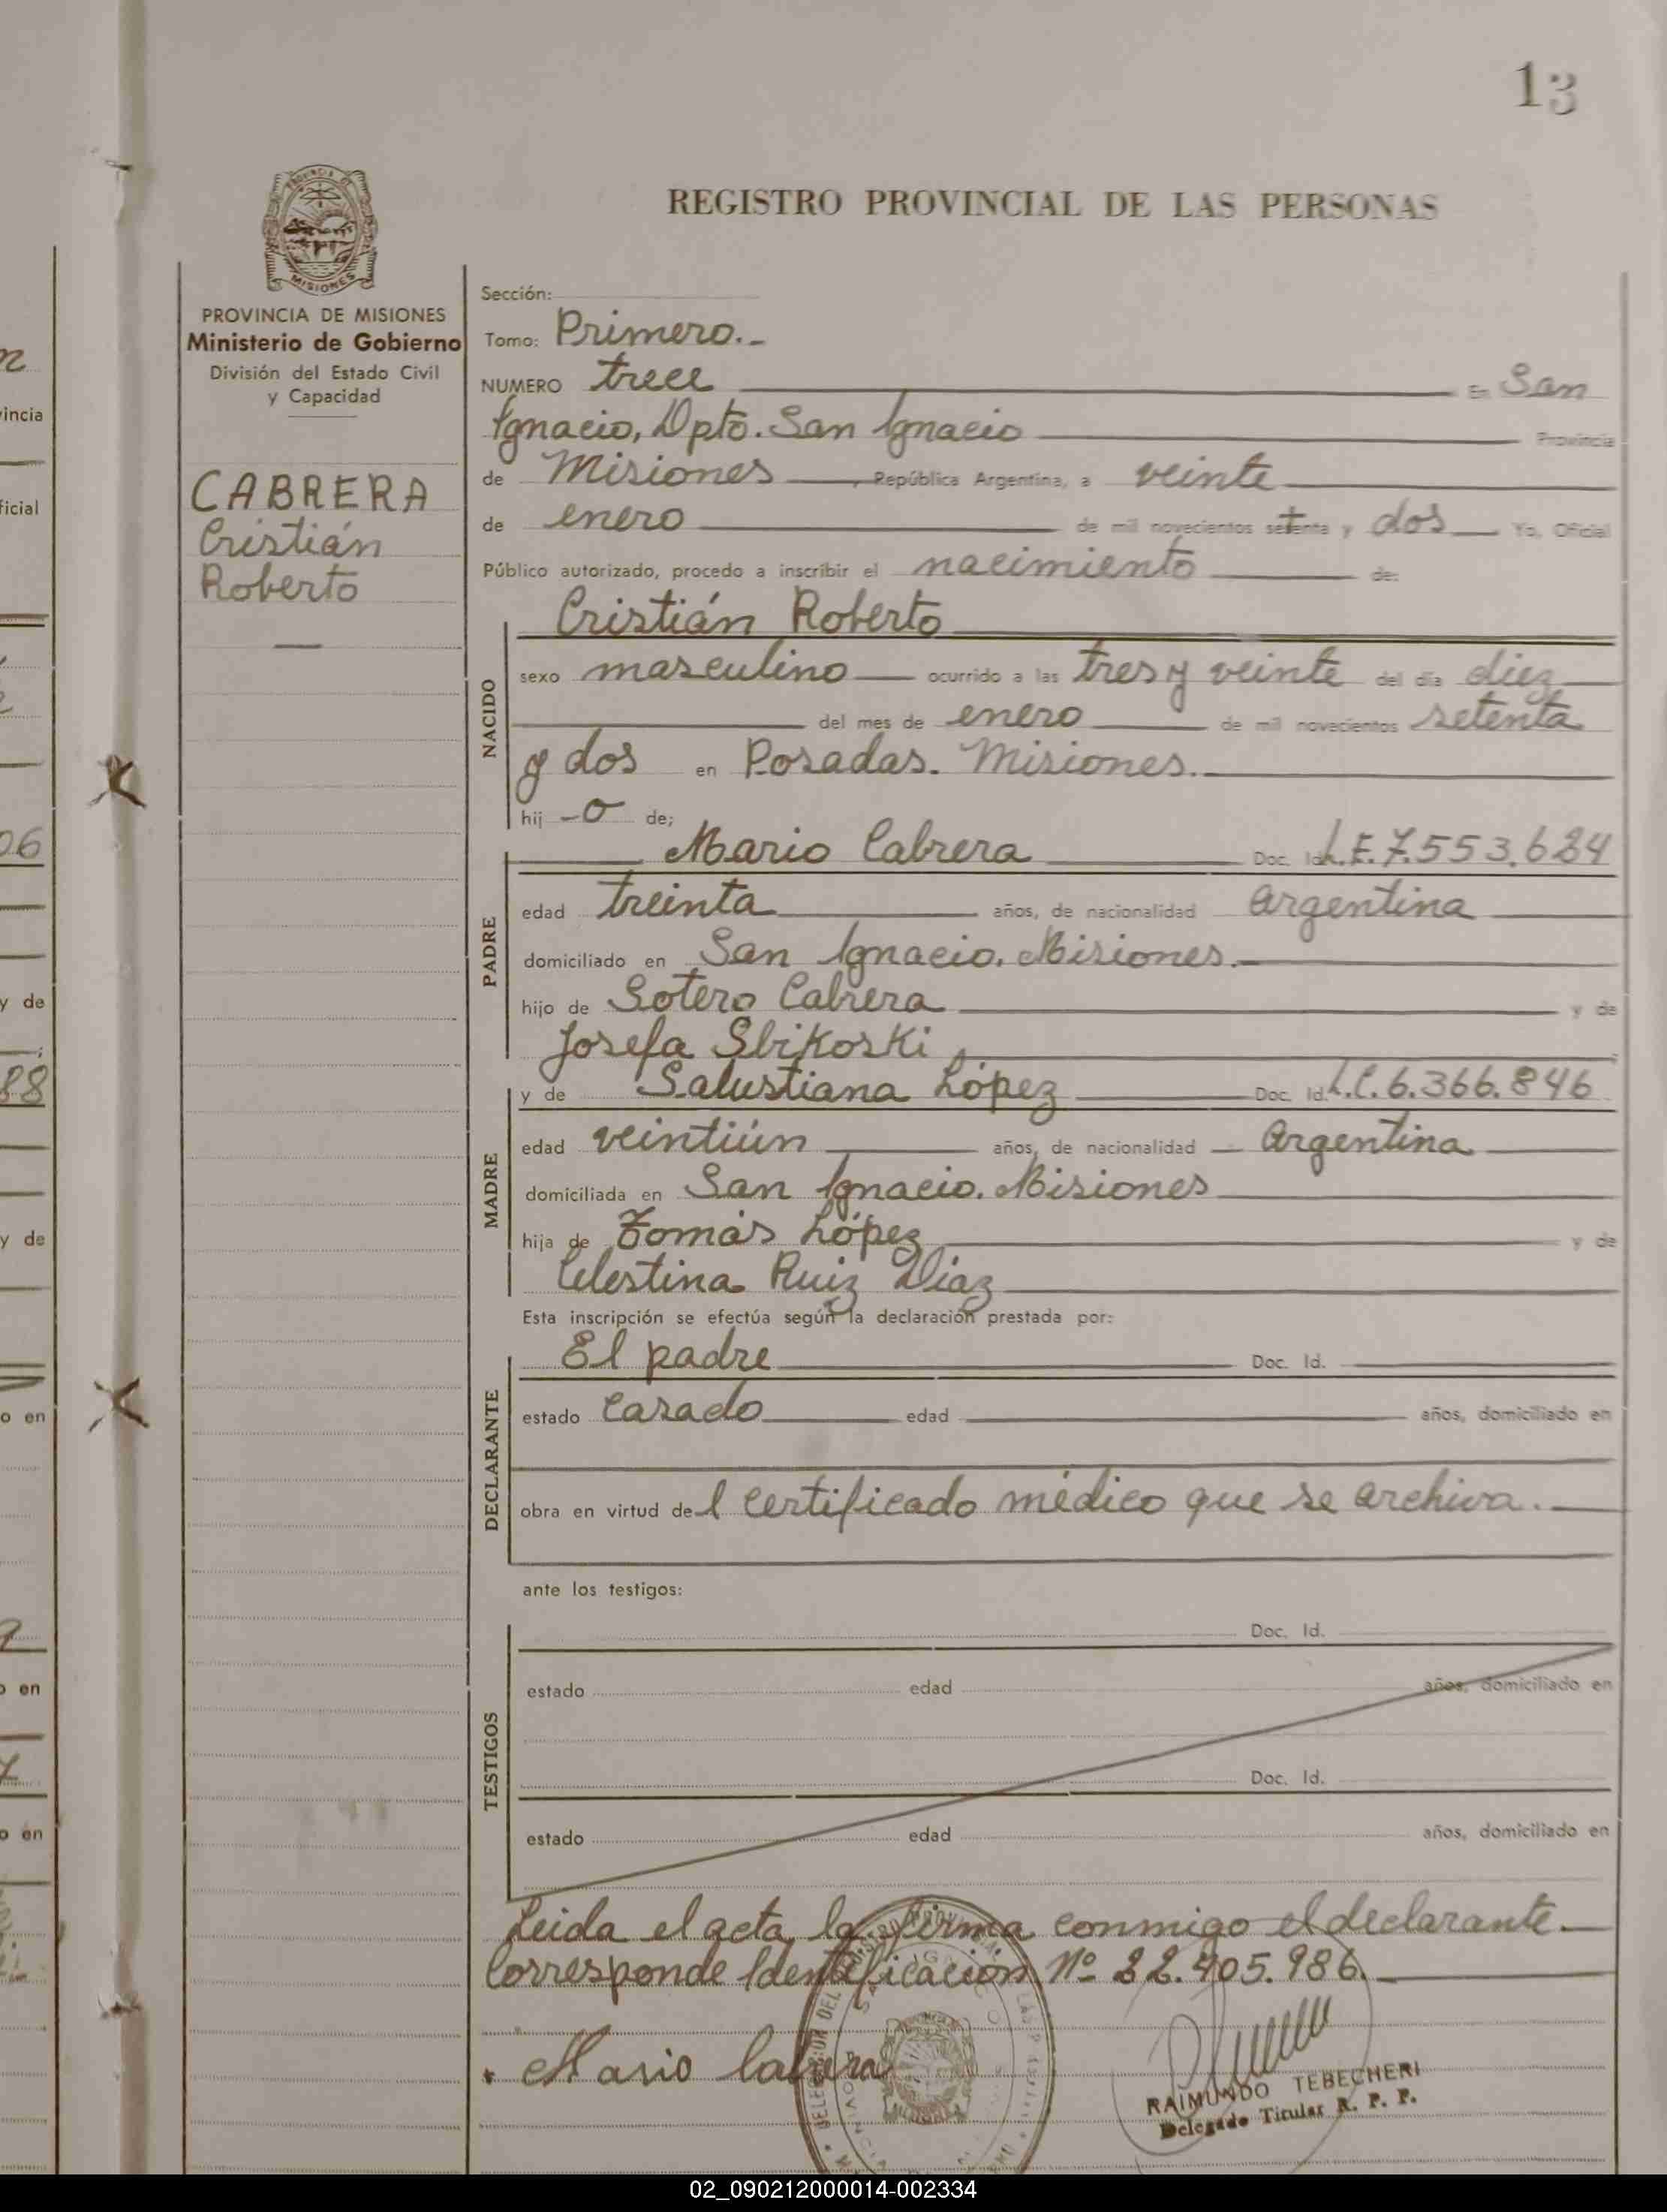 13
REGISTRO PROVINCIAL DE LAS PERSONAS
PROVINCIA DE
MISIONES
PROVINCIA DE MISIONES
Ministerio de Gobierno
División del Estado Civil
y Capacidad
CABRERA
Cristián
Roberto
Sección:
Tomo: Primero.-
NUMERO trece En San
Ignacio, Dpto. San Ignacio Provincia
de Misiones, República Argentina, a veinte
de enero de mil novecientos setenta y dos Yo, Oficial
Público autorizado, procedo a inscribir el nacimiento de:
Cristián Roberto
NACIDO
sexo masculino ocurrido a las tres y veinte del día diez
del mes de enero de mil novecientos setenta
y dos en Posadas. Misiones.
hij -o de;
PADRE
Mario Cabrera Doc. Id. L.E. 7.553.684
edad treinta años, de nacionalidad argentina
domiciliado en San Ignacio. Misiones.
hijo de Sotero Cabrera y de
Josefa Sbikoski
MADRE
y de Salustiana López Doc. Id. L.C. 6.366.846
edad veintiún años, de nacionalidad argentina
domiciliada en San Ignacio. Misiones
hija de Tomás López y de
Celestina Ruiz Diaz
Esta inscripción se efectúa según la declaración prestada por:
DECLARANTE
El padre Doc. Id.
estado casado edad años, domiciliado en
obra en virtud del certificado médico que se archiva.
ante los testigos:
TESTIGOS
Doc. Id.
estado edad años, domiciliado en
Doc. Id.
estado edad años, domiciliado en
Leida el acta, la firma conmigo el declarante.
Corresponde Identificación Nº 22.405.986.
Mario Cabrera
RAIMUNDO TEBECHERI
Delegado Titular R. P. P.
02_090212000014-002334